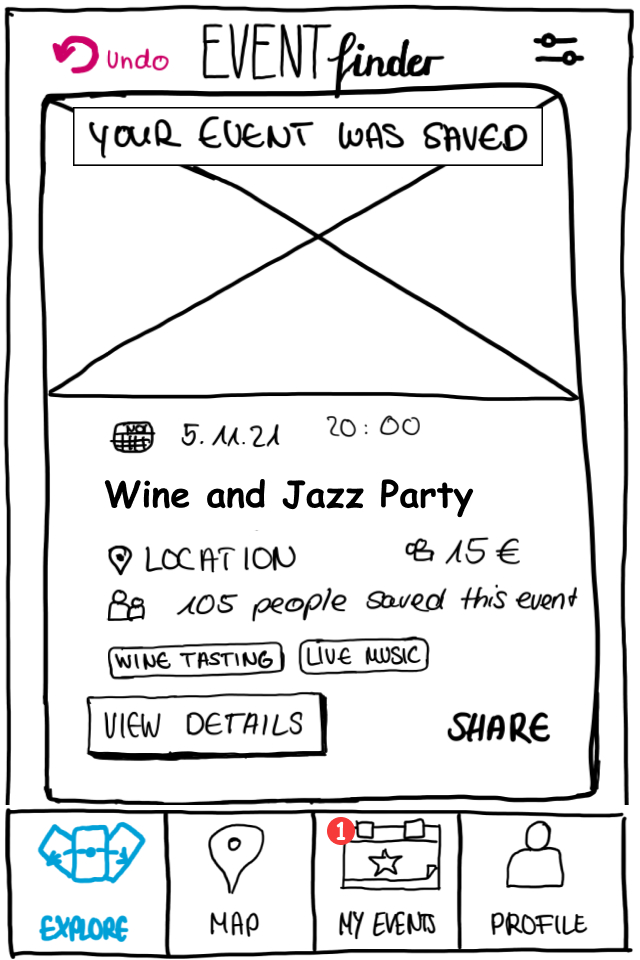 Undo EVENT finder
YOUR EVENT WAS SAVED
5.11.21 20:00
Wine and Jazz Party
LOCATION 15 €
105 people saved this event
WINE TASTING LIVE MUSIC
VIEW DETAILS SHARE
1
EXPLORE MAP MY EVENTS PROFILE